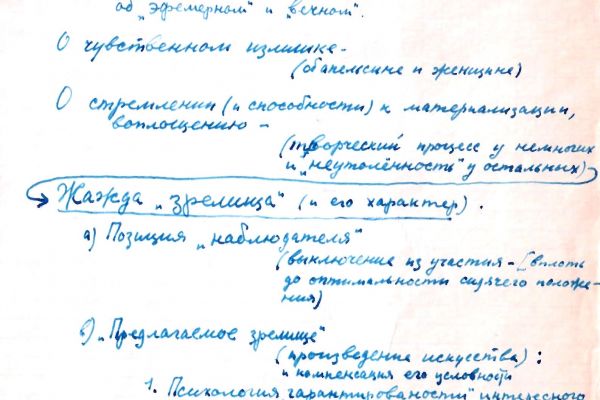 об „эфемерном" и „вечном".
О чувственном излишке –
(об апельсине и женщине)
О стремлении (и способности) к материализации,
воплощению –
(творческий процесс у немногих
и „неутолённость" у остальных)
Жажда „зрелища" (и его характер).
а) Позиция „наблюдателя"
(выключение из участия – [вплоть
до оптимальности сидячего положе-
ния)
„Предлагаемое зрелище"
(произведение искусства):
и компенсация его условности
1. Психология „гарантированости" интересного